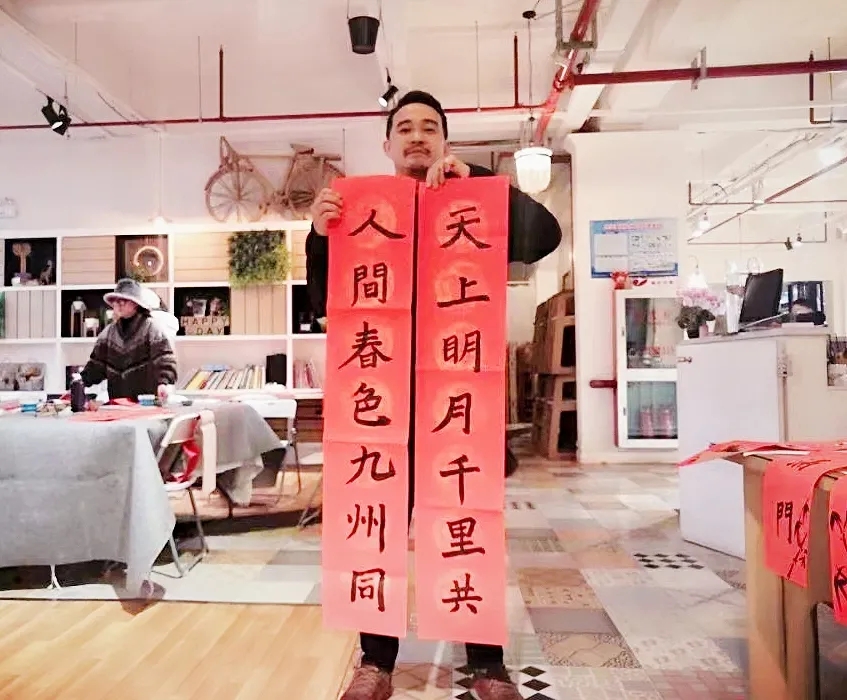 天上明月千里共
人間春色九州同
HAPPY
DAY
門